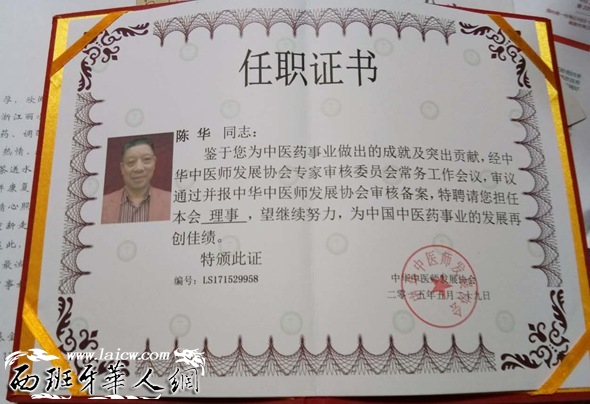 任职证书
陈 华 同志：
鉴于您为中医药事业做出的成就及突出贡献，经中
华中医师发展协会专家审核委员会常务工作会议，审议
通过并报中华中医师发展协会审核备案，特聘请您担任
本会 理事 ，望继续努力，为中国中医药事业的发展再
创佳绩。
特颁此证
编号：LS171529958
中华中医师发展协会
二〇一五年五月二十九日
www.laicw.com
西班牙華人網